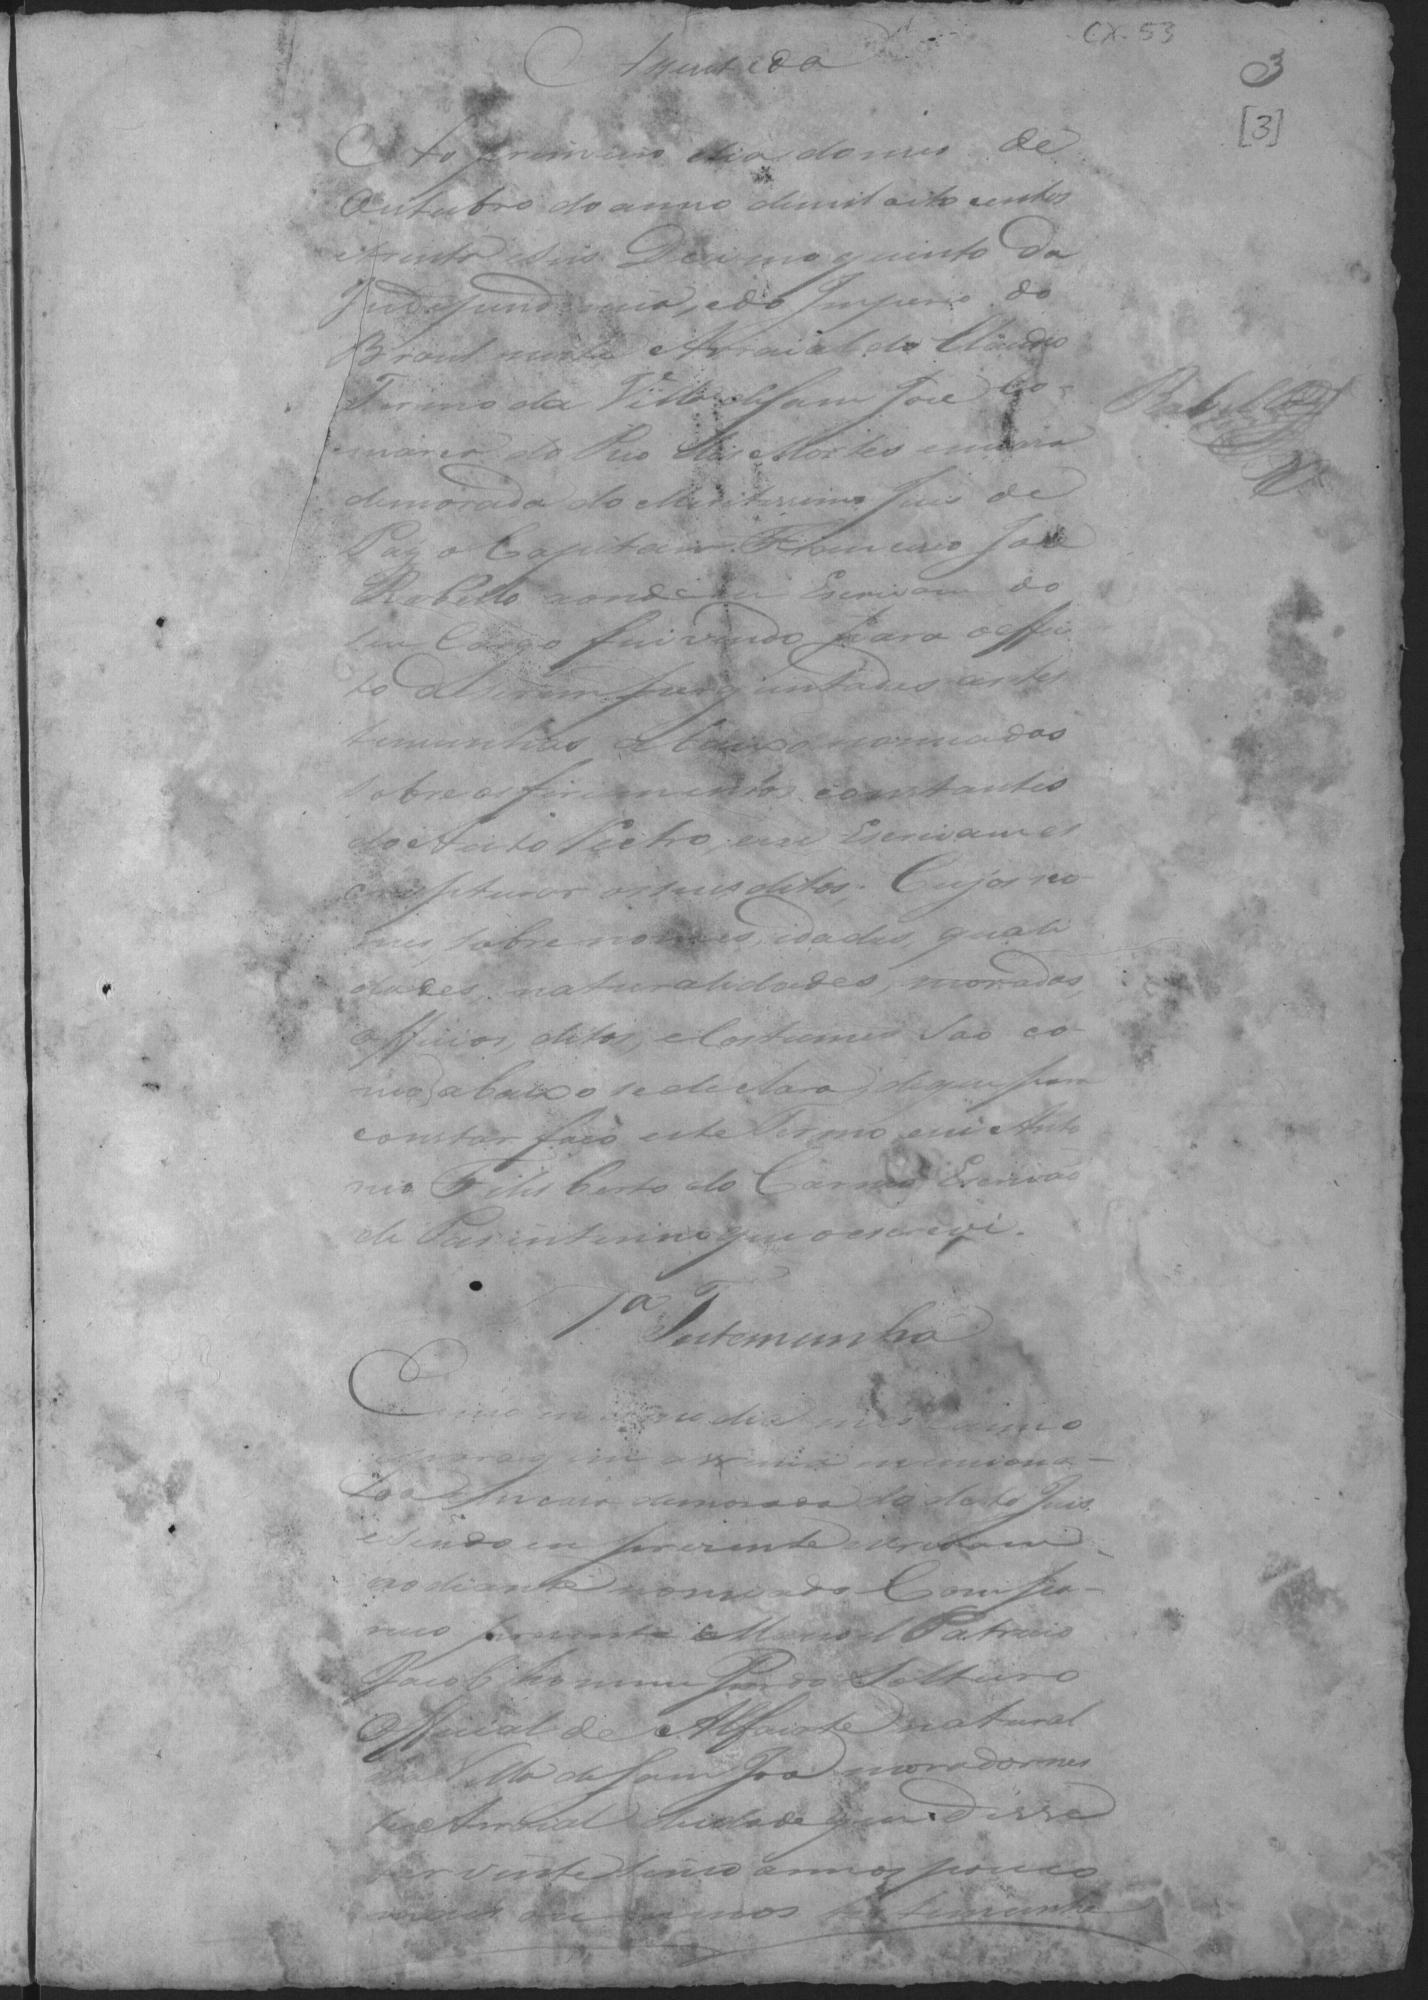 CX. 53
3
[3]
Assentada
Ao primeiro dia do mes de
Outubro do anno de mil oito centos
e trinta e seis Decimo quinto da
Independencia, e do Imperio do
Brasil neste Arraial do Claudio
Termo da Vª de Sam José Co-
marca do Rio das Mortes em casa
de morada do Meritissimo Juis de
Paz o Capitam Francisco José
Rabello aonde eu Escrivam do
seu Cargo fui vindo para o effei
to de serem perguntadas as tes
temunhas abaixo nomeadas
sobre os ferimentos constantes
do Auto Retro, e eu Escrivam es
crepturar os seus ditos; Cujos no
mes, sobre nomes, idades, quali
dades, naturalidades, moradas,
officios, ditos, e Costumes sao co
mo abaixo se declara, de que para
constar faço este Termo, eu Anto
nio Feliberto do Carmo Escrivão
de Pas interino que o escrevi.
Rabello
1ª Testemunha
E no mesmo dia mes e anno
e arraial assima menciona-
do em casa de morada do dito Juis
e sendo eu prezente escrivam
ao diante nomeado Compa-
receo prezente Manoel Patricio
Jacob homem Pardo Solteiro
Official de Alfaiate natural
da Villa de Sam José morador nes
te Arraial de idade que disse
ser vinte e sinco annos pouco
mais ou menos testemunha